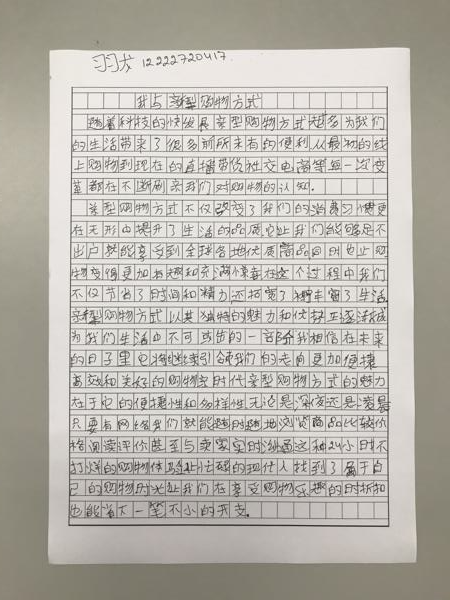 12222720417
我与新型购物方式
随着科技的快发展新型购物方式越多为我们
的生活带来了很多前所未有的便利从最初的线
上购物到现在的直播带货社交电商等每一次变
革都在不断刷新我们对购物的认知。
新型购物方式不仅改变了我们的消费习惯更
在无形中提升了生活的品质它让我们能够足不
出户就能享受到全球各地优质商品同时也让购
物变得更加有趣和充满惊喜在这个过程中我们
不仅节省了时间和精力还拓宽了丰富了生活
新型购物方式以其独特的魅力和优势正逐渐成
为我们生活中不可或缺的一部分我相信在未来
的日子里它将继续引领我们的走向更加便捷
高效和美好的购物时代新型购物方式的魅力
在于它的便捷性和多样性无论是深夜还是凌晨
只要有网络我们就能随时随地浏览商品比较价
格阅读评价甚至与卖家实时沟通这种24小时不
打烊的购物体验让忙碌的现代人找到了属于自
己的购物时光让我们在享受购物乐趣的时折扣
也能省下一笔不小的开支。